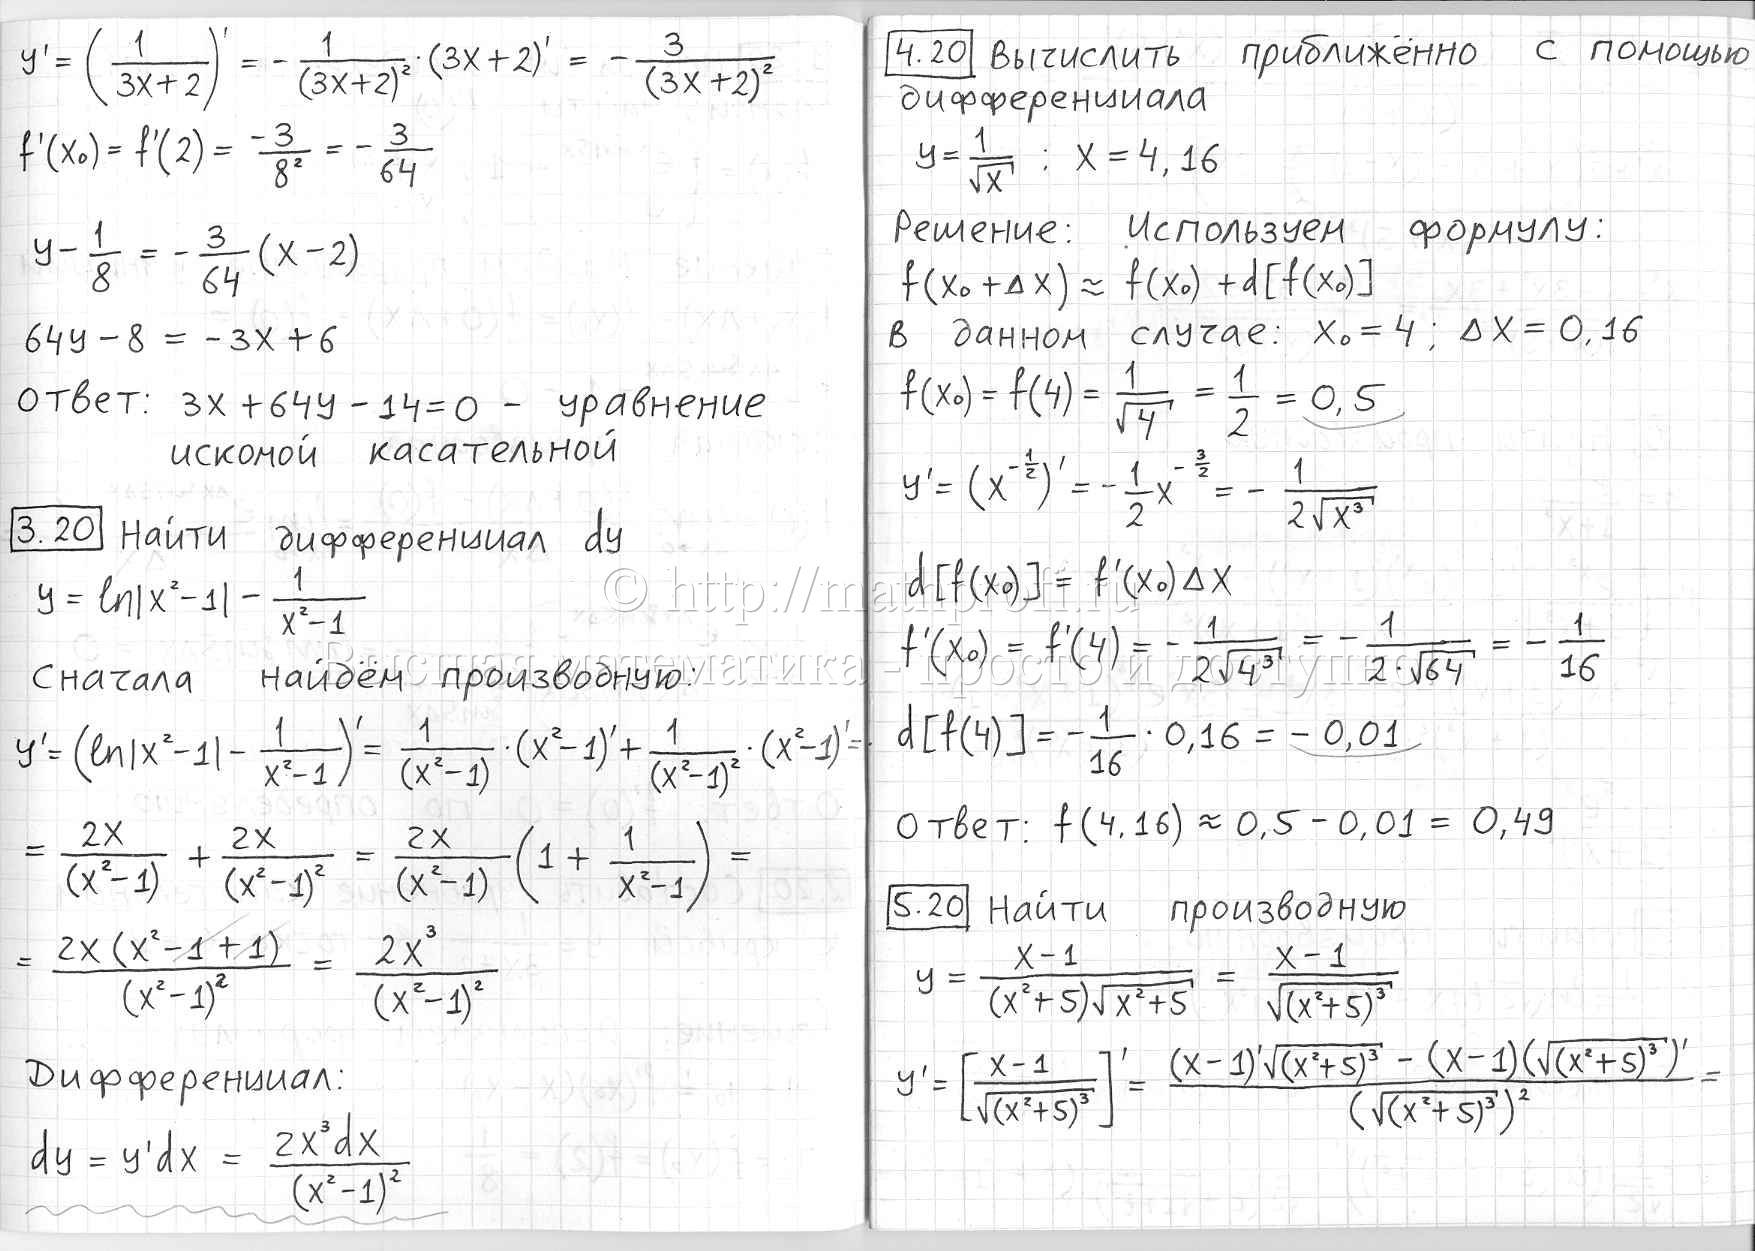 y' = (1/(3x+2))' = - 1/(3x+2)² · (3x+2)' = - 3/(3x+2)²
f'(x₀) = f'(2) = -3/8² = - 3/64
y - 1/8 = - 3/64 (x - 2)
64y - 8 = -3x + 6
Ответ: 3x + 64y - 14 = 0 - уравнение
искомой касательной
3.20 Найти дифференциал dy
y = ln|x²-1| - 1/(x²-1)
Сначала найдём производную:
y' = (ln|x²-1| - 1/(x²-1))' = 1/(x²-1) · (x²-1)' + 1/(x²-1)² · (x²-1)' =
= 2x/(x²-1) + 2x/(x²-1)² = 2x/(x²-1) (1 + 1/(x²-1)) =
= 2x(x²-1+1)/(x²-1)² = 2x³/(x²-1)²
Дифференциал:
dy = y'dx = 2x³dx/(x²-1)²
4.20 Вычислить приближённо с помощью
дифференциала
y = 1/√x ; x = 4,16
Решение: Используем формулу:
f(x₀ + Δx) ≈ f(x₀) + d[f(x₀)]
В данном случае: x₀ = 4; Δx = 0,16
f(x₀) = f(4) = 1/√4 = 1/2 = 0,5
y' = (x^(-1/2))' = - 1/2 x^(-3/2) = - 1/(2√x³)
d[f(x₀)] = f'(x₀)Δx
f'(x₀) = f'(4) = - 1/(2√4³) = - 1/(2·√64) = - 1/16
d[f(4)] = - 1/16 · 0,16 = - 0,01
Ответ: f(4,16) ≈ 0,5 - 0,01 = 0,49
5.20 Найти производную
y = (x-1)/((x²+5)√(x²+5)) = (x-1)/√((x²+5)³)
y' = [(x-1)/√((x²+5)³)]' = ((x-1)'√((x²+5)³) - (x-1)(√((x²+5)³))')/(√((x²+5)³))² =
© http://mathprofi.ru
Высшая математика - просто и доступно!